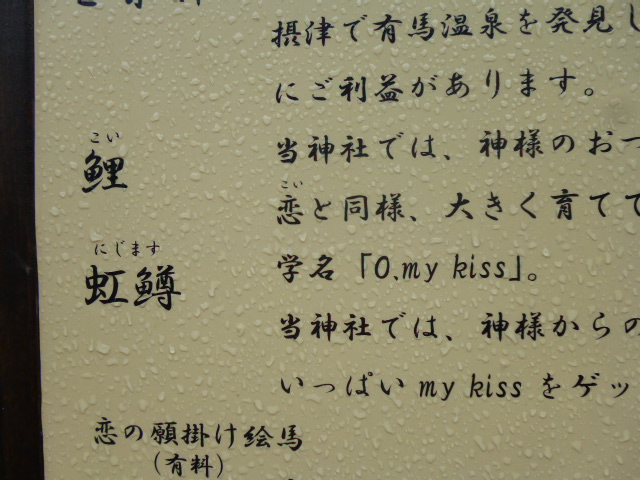 摂津で有馬温泉を発見し
にご利益があります。
こい
鯉
当神社では、神様のおつ
こい
恋と同様、大きく育てて
にじます
虹鱒
学名「O.my kiss」。
当神社では、神様からの
いっぱい my kiss をゲッ
恋の願掛け絵馬
(有料)